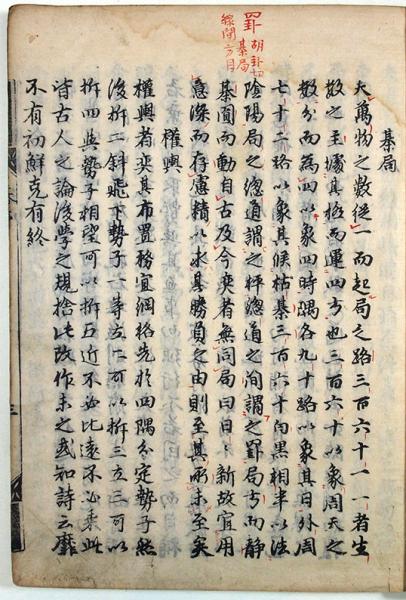 罫
胡卦切
棊局
線間方目
棊局
夫萬物之數從一而起局之路三百六十一一者生
數之主據其極而運四方也三百六十以象周天之
數分而為四以象四時隅各九十路以象其日外周
七十二路以象其候枯棊三百六十白黑相半以法
陰陽局之線道謂之枰線道之間謂之罫局方而靜
棊圓而動自古及今奕者無同局曰日新故宜用
意深而存慮精以求其勝負之由則至其所未至矣
權輿
權輿者奕其布置務宜綱格先於四隅分定勢子然
後拆二斜飛下勢子一等立二可以拆三立三可以
拆四與勢子相望可以拆五近不必比遠不必乖此
皆古人之論後學之規捨此改作未之或知詩云靡
不有初鮮克有終